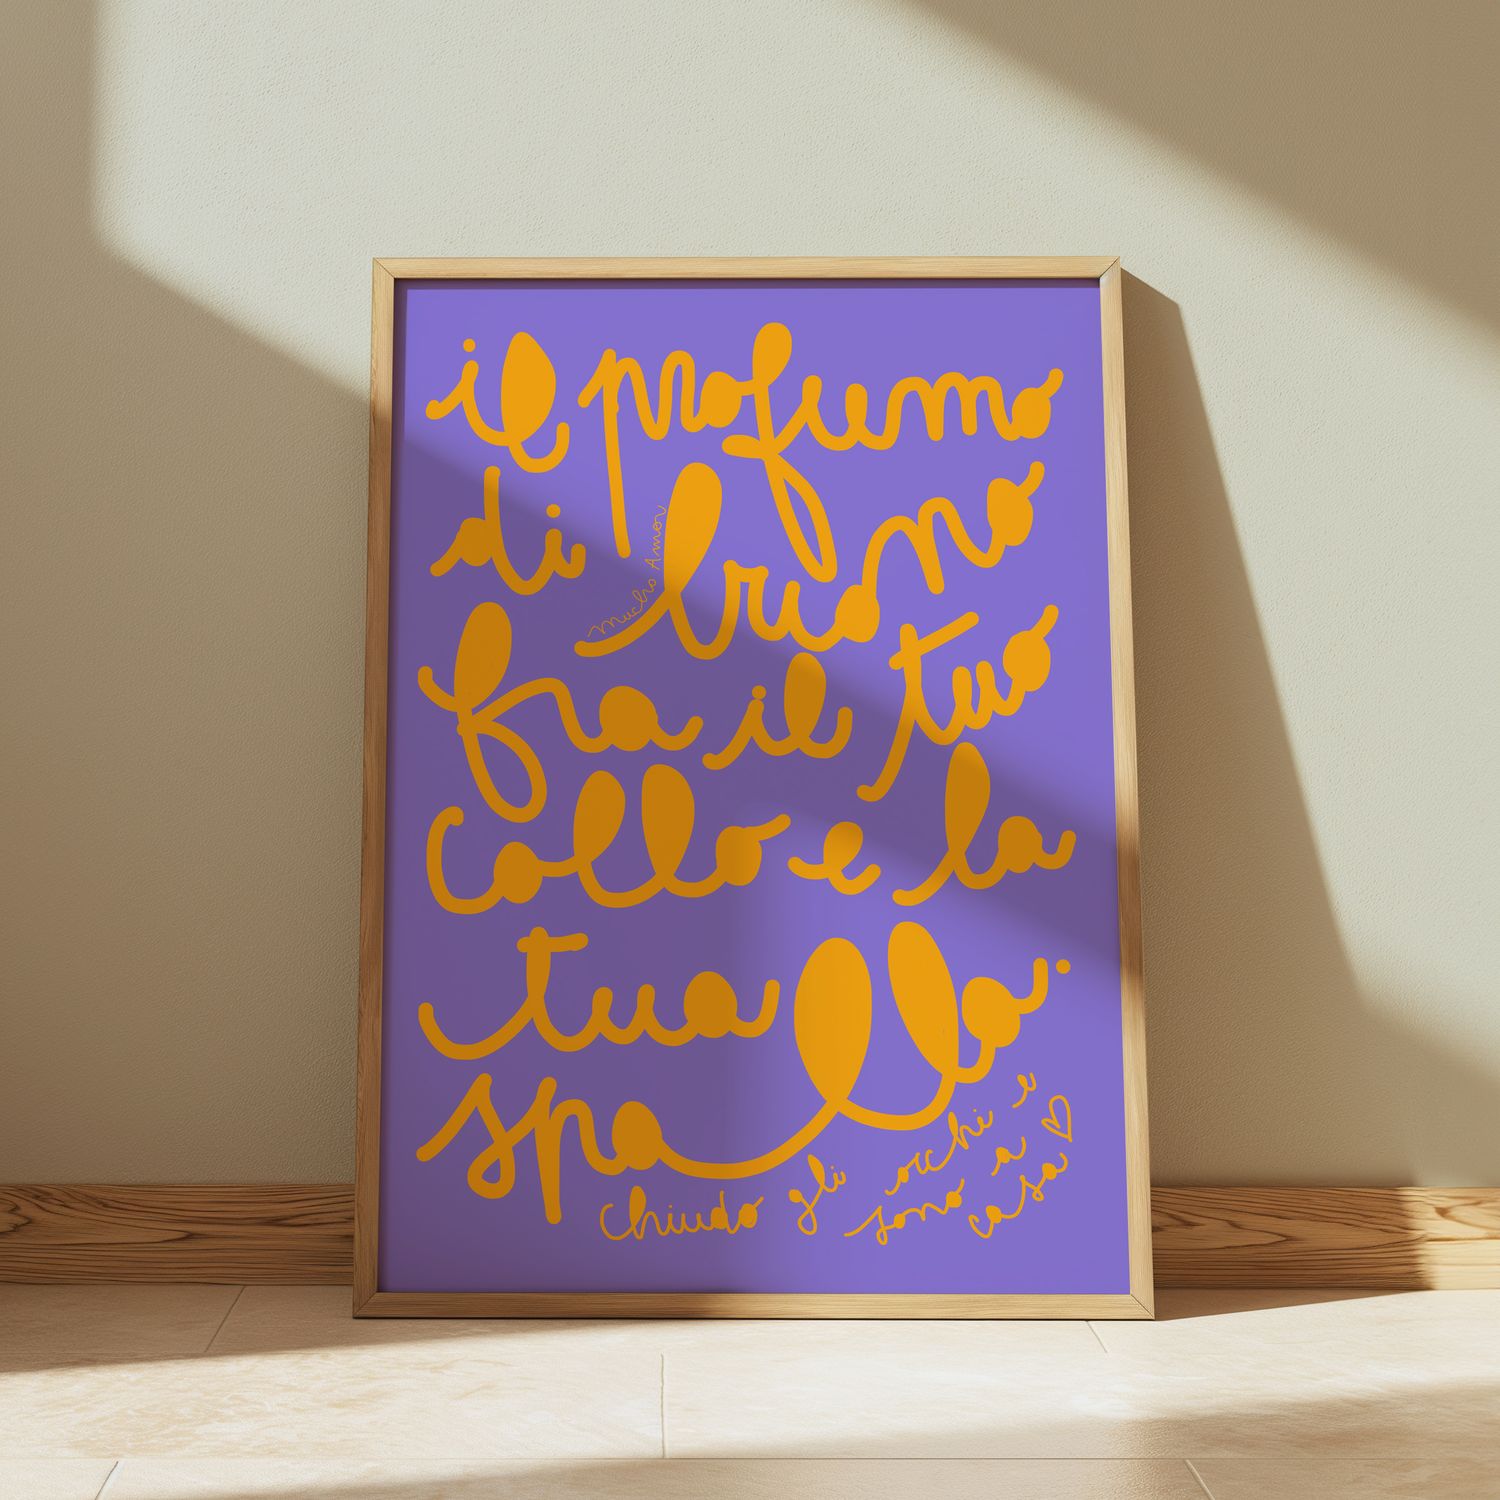 il profumo
di buono
Mucho Amor
fra il tuo
collo e la
tua
spalla.
chiudo gli occhi e
sono a
casa